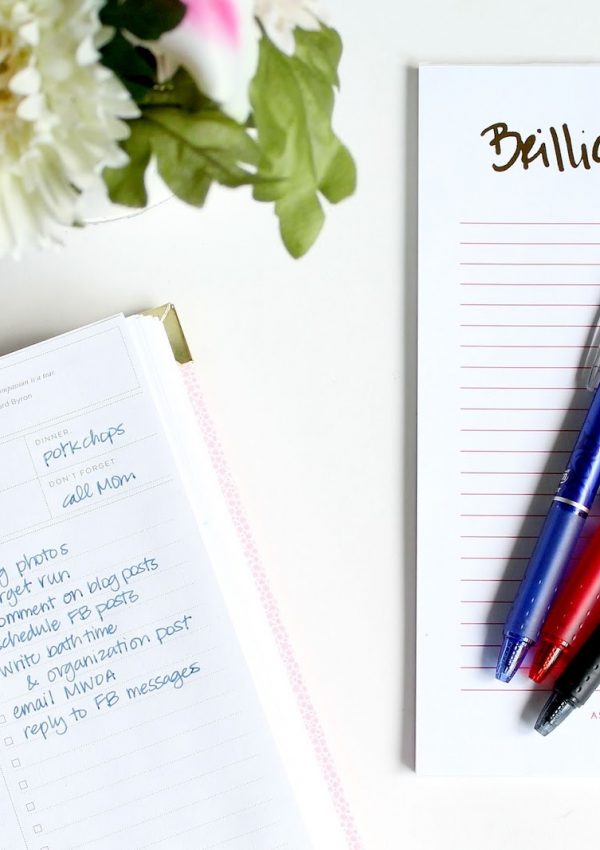 Brillia
mpassion is a tear.
rd Byron
DINNER:
porkchops
DON'T FORGET
call Mom
g photos
rget run
omment on blog posts
schedule FB posts
write bath time
& organization post
email MWOA
reply to FB messages
AS